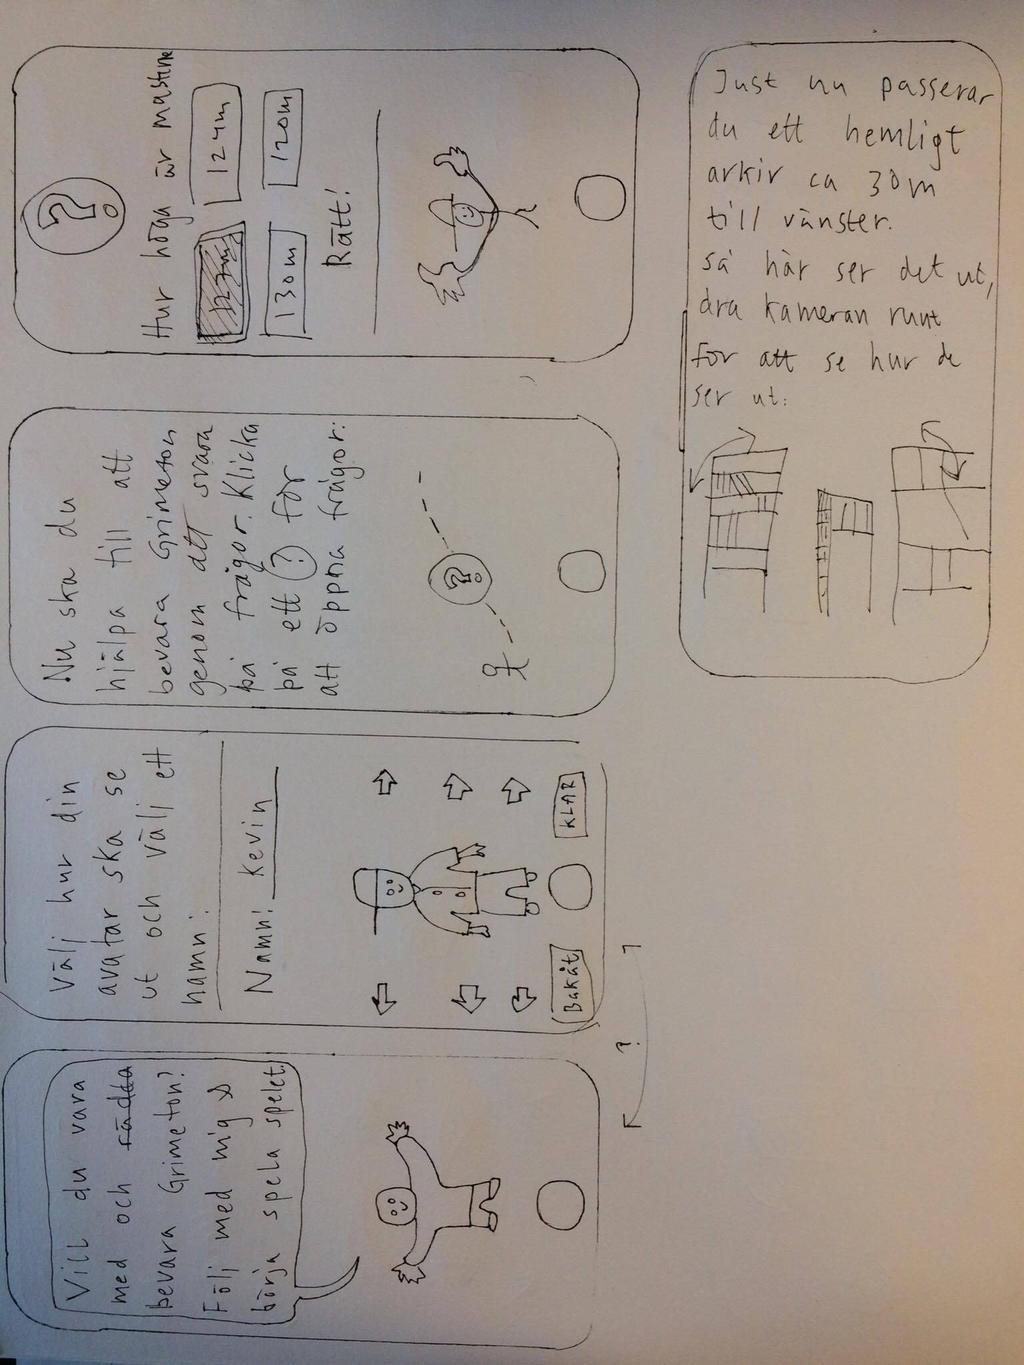 Vill du vara
med och rädda
bevara Grimeton?
Följ med mig &
börja spela spelet
Välj hur din
avatar ska se
ut och välj ett
namn:
Namn: Kevin
Bakåt
KLAR
?
Nu ska du
hjälpa till att
bevara Grimeton
genom att svara
på frågor. Klicka
på ett ? för
att öppna frågor:
?
?
Hur höga är masterne
127m
124m
130m
120m
Rätt!
Just nu passerar
du ett hemligt
arkiv ca 30m
till vänster.
så här ser det ut,
dra kameran runt
för att se hur de
ser ut: